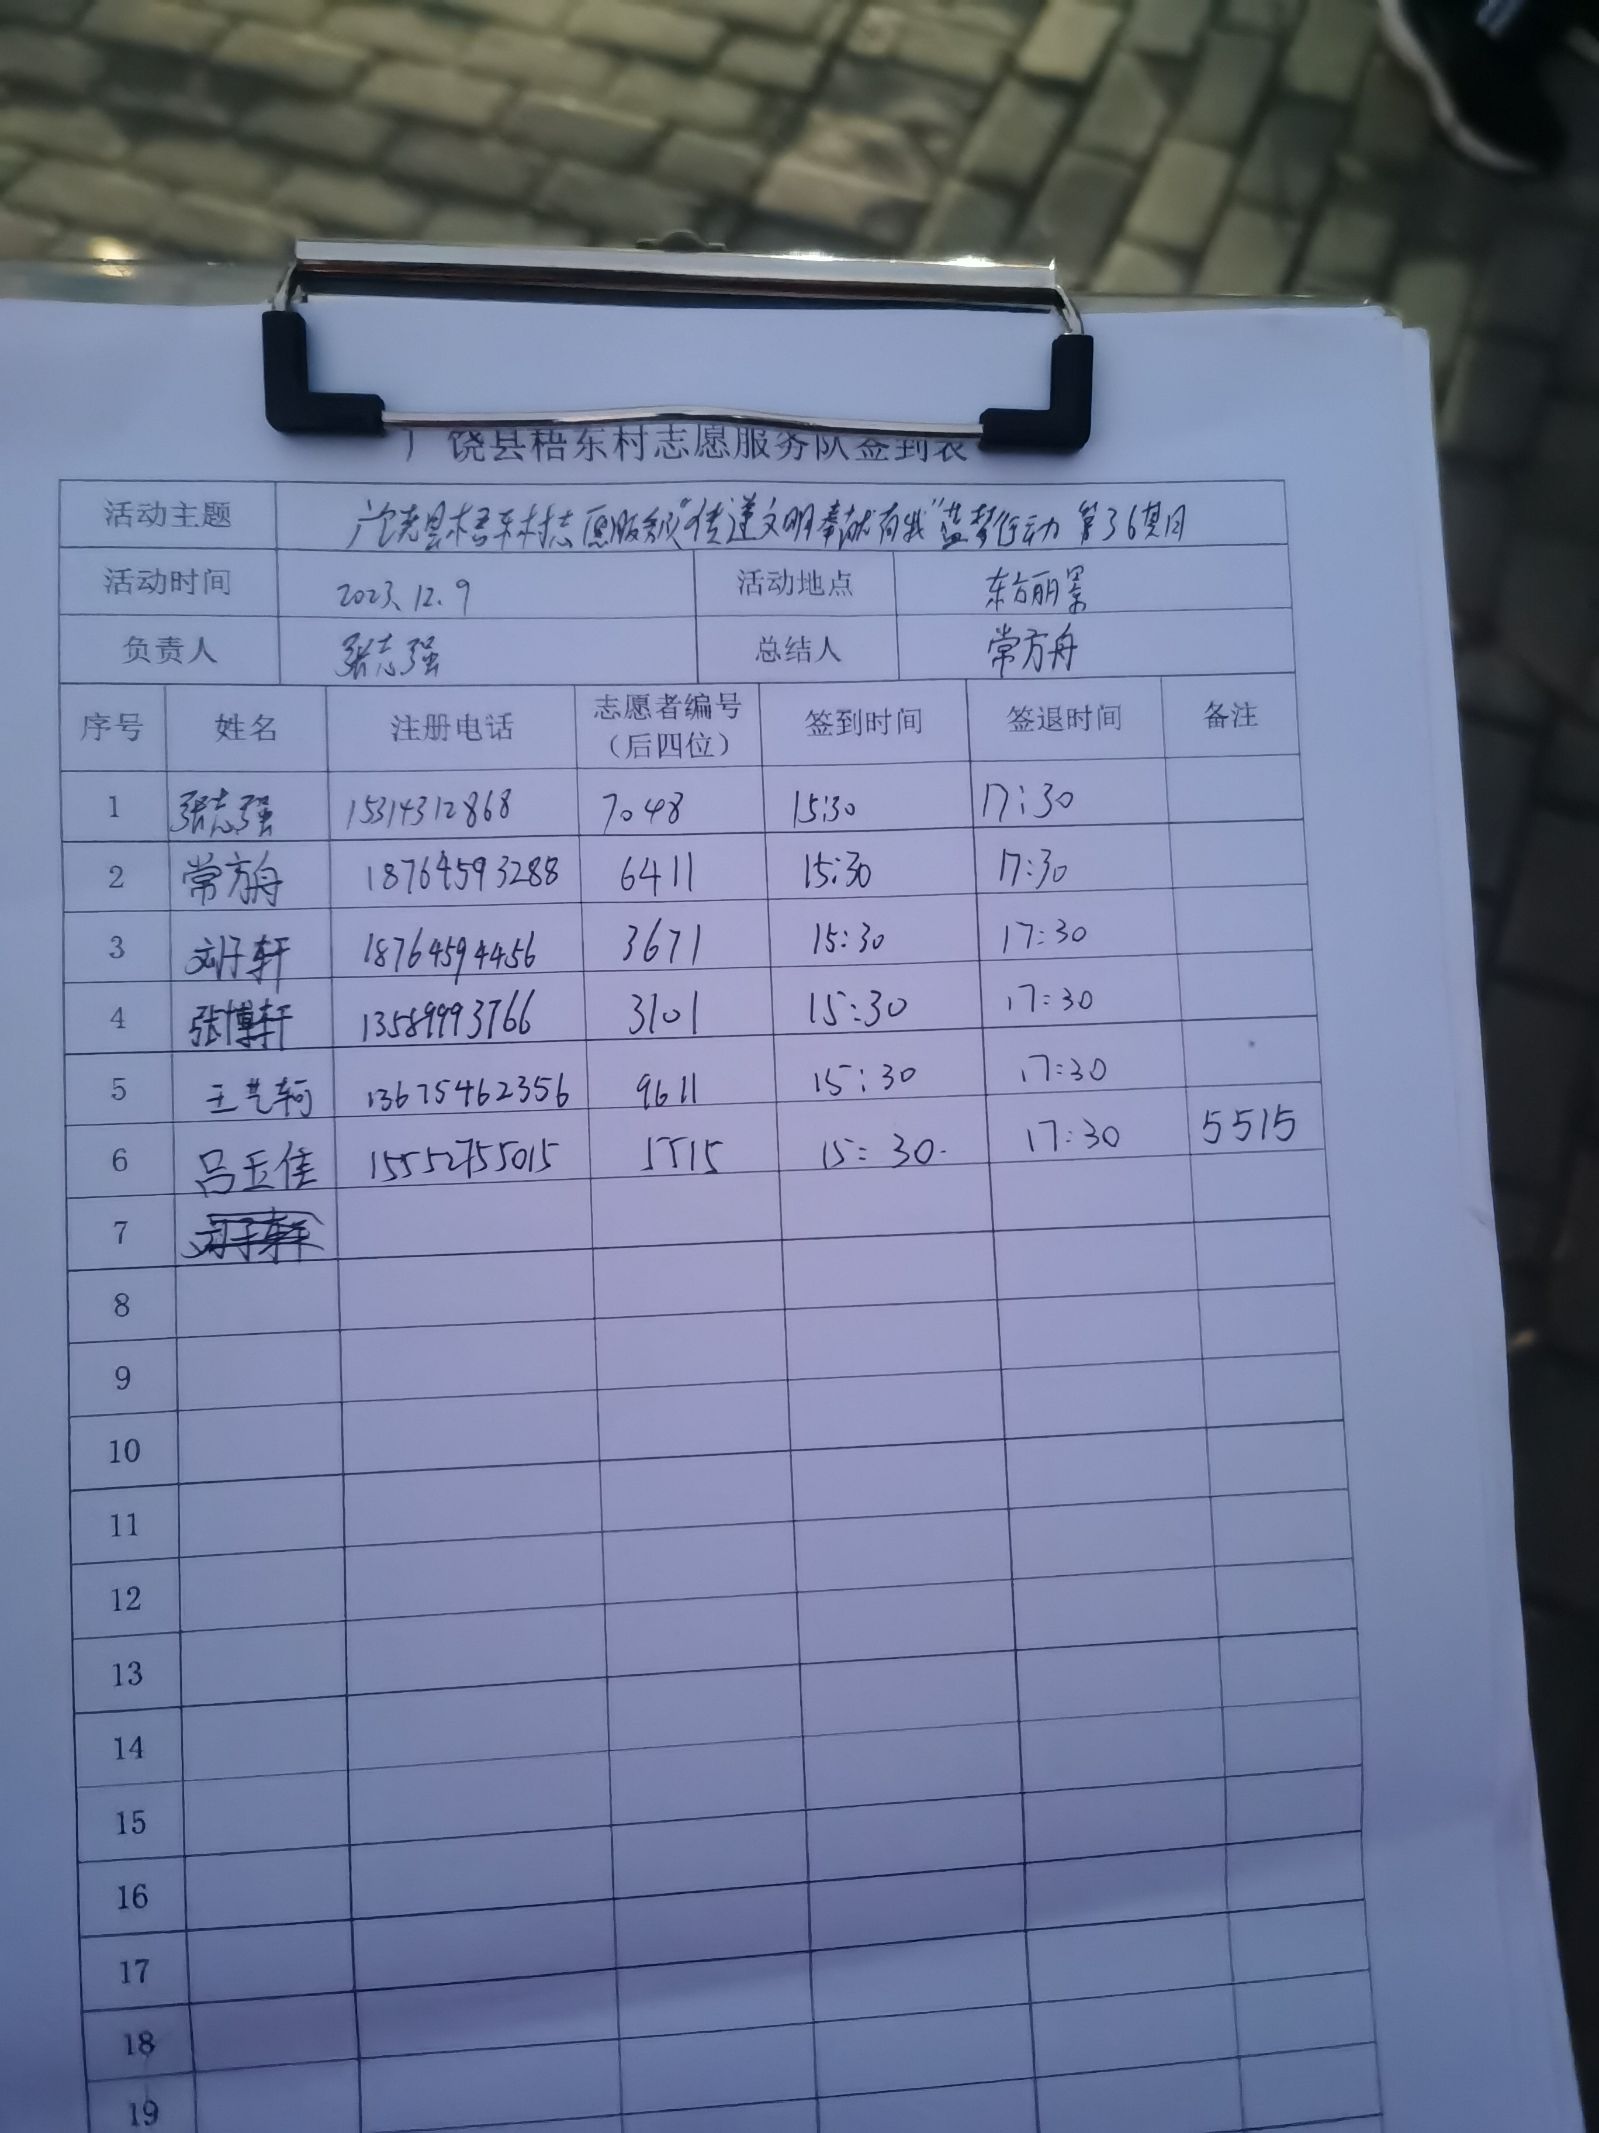 广饶县梧东村志愿服务队签到表
活动主题 广饶县梧东村志愿服务队"传递文明奉献有我"蓝梦行动 第36期
活动时间 2023.12.9 活动地点 东方丽景
负责人 张志强 总结人 常方舟
序号 姓名 注册电话 志愿者编号（后四位） 签到时间 签退时间 备注
1 张志强 15314312868 7048 15:30 17:30
2 常方舟 18764593288 6411 15:30 17:30
3 刘仔轩 18764594456 3671 15:30 17:30
4 张博轩 13589993766 3101 15:30 17:30
5 王艺轲 13675462356 9611 15:30 17:30
6 吕玉佳 15552755015 5515 15:30 17:30 5515
7
8
9
10
11
12
13
14
15
16
17
18
19